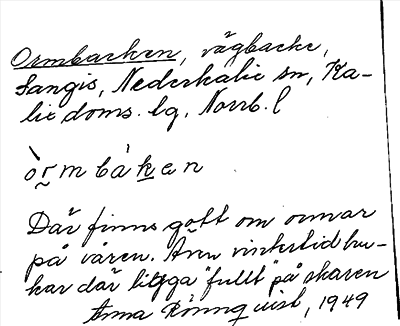 Ormbacken, vägbacke,
Sangis, Nederkalix sn, Ka-
lix doms. lg, Norrb. l
òr̰mbàḵen
Där finns gott om ormar
på våren. Även vintertid bru-
kar där ligga "fullt" på skaren
Anna Rönnquist, 1949